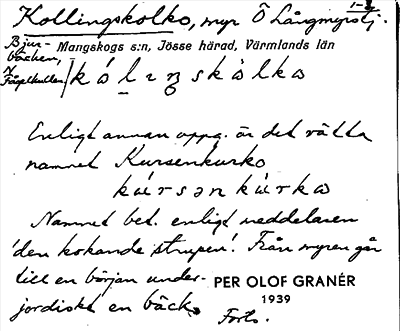 Kollingskolko, myr Ö Långmyrstj. 1-2
Mangskogs s:n, Jösse härad, Värmlands län
Bjur-
bäcken,
N
Fågelkullen
kólıŋskòlka
Enligt annan uppg. är det rätta
namnet Kursenkurko
kúrsənkùrka
Namnet bet. enligt meddelaren
'den kokande strupen'. Från myren går
till en början under-
jordiskt en bäck.
Forts.
PER OLOF GRANÉR
1939